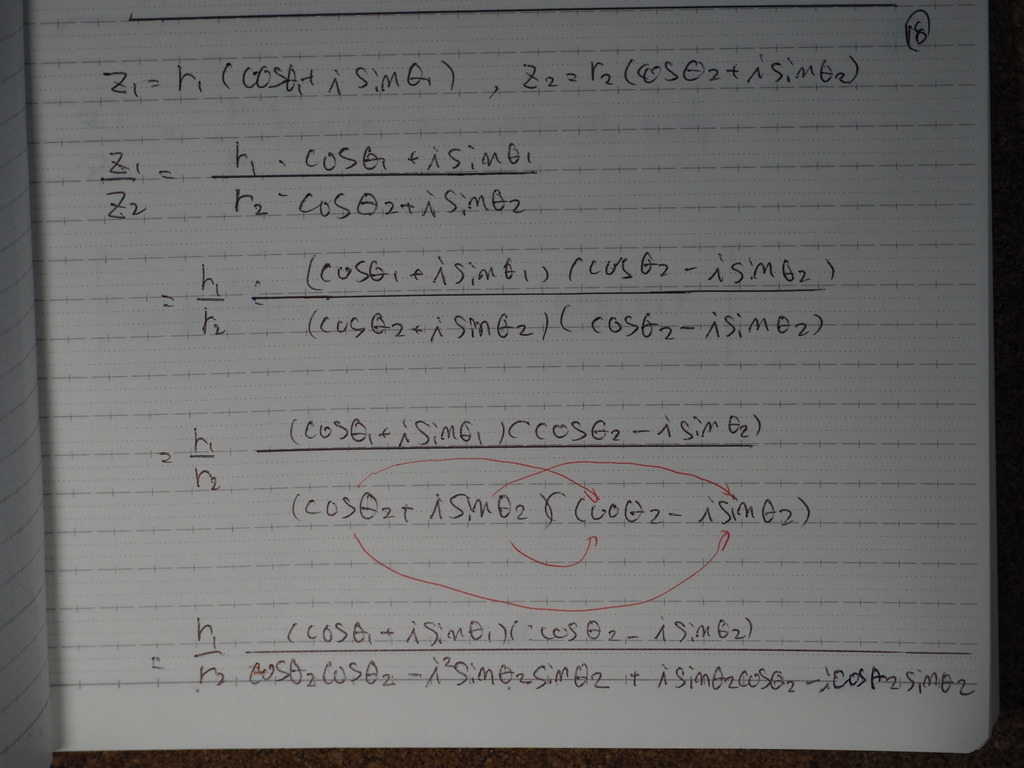 ⑱
z₁ = r₁ (cosθ₁ + i sinθ₁) , z₂ = r₂ (cosθ₂ + i sinθ₂)
z₁/z₂ = r₁ · cosθ₁ + i sinθ₁ / r₂ · cosθ₂ + i sinθ₂
= r₁/r₂ · (cosθ₁ + i sinθ₁) (cosθ₂ - i sinθ₂) / (cosθ₂ + i sinθ₂) (cosθ₂ - i sinθ₂)
= r₁/r₂ (cosθ₁ + i sinθ₁) (cosθ₂ - i sinθ₂) / (cosθ₂ + i sinθ₂) (coθ₂ - i sinθ₂)
= r₁/r₂ (cosθ₁ + i sinθ₁) (cosθ₂ - i sinθ₂) / cosθ₂ cosθ₂ - i² sinθ₂ sinθ₂ + i sinθ₂ cosθ₂ - i cosθ₂ sinθ₂